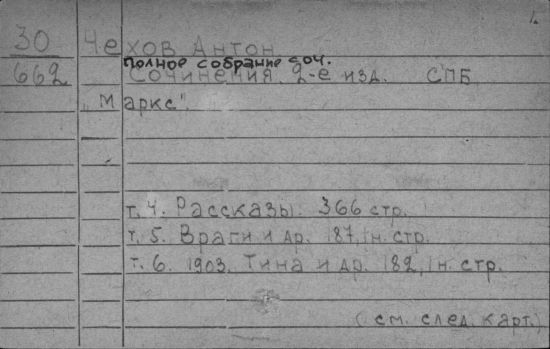 1.
30 Чехов Антон
Полное собрание соч.
662 Сочинения. 2-е изд. СПБ
„Маркс".
т. 4. Рассказы. 366 стр.
т. 5. Враги и др. 187, 1 н. стр.
т. 6. 1903. Тина и др. 182, 1 н. стр.
(см. след. карт.)